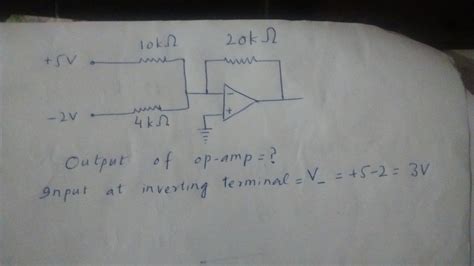 10kΩ
20kΩ
+5V
-2V
4kΩ
-
+
Output of op-amp = ?
Input at inverting terminal = V_ = +5-2 = 3V